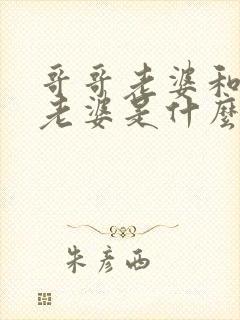 哥哥老婆和
老婆是什麼
朱彦西